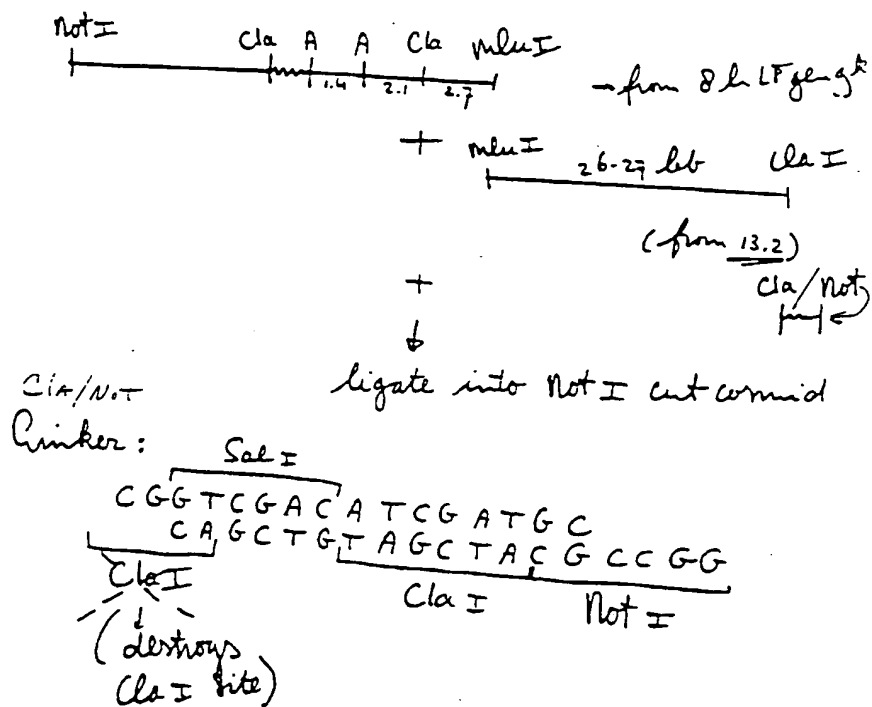 Not I Cla A A Cla mlu I
1.4 2.1 2.7
→ from 8 h LF
+
mlu I 26-27 kb Cla I
(from 13.2)
Cla/Not
+
↓
ligate into Not I cut cosmid
Cla/Not
Linker:
Sal I
C G G T C G A C A T C G A T G C
C A G C T G T A G C T A C G C C G G
Cla I
Cla I Not I
(destroys
Cla I site)